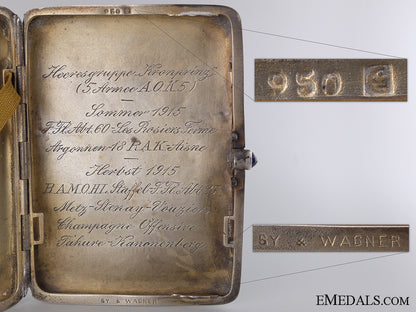 950
Heeresgruppe Kronprinz
(5 Armee A.O.K 5)
—
Sommer 1915
F. Fl. Abt. 60 - Les Rosiers Ferme
Argonnen - 18 R.A.K - Aisne
—
Herbst 1915
B.A.M.O.H.L. Staffel - F. Fl. Abt.
Metz - Stenay - Vouziers
Champagne Offensive
Tahure - Kanonenberg
SY & WAGNER
950
SY & WAGNER
EMEDALS.COM